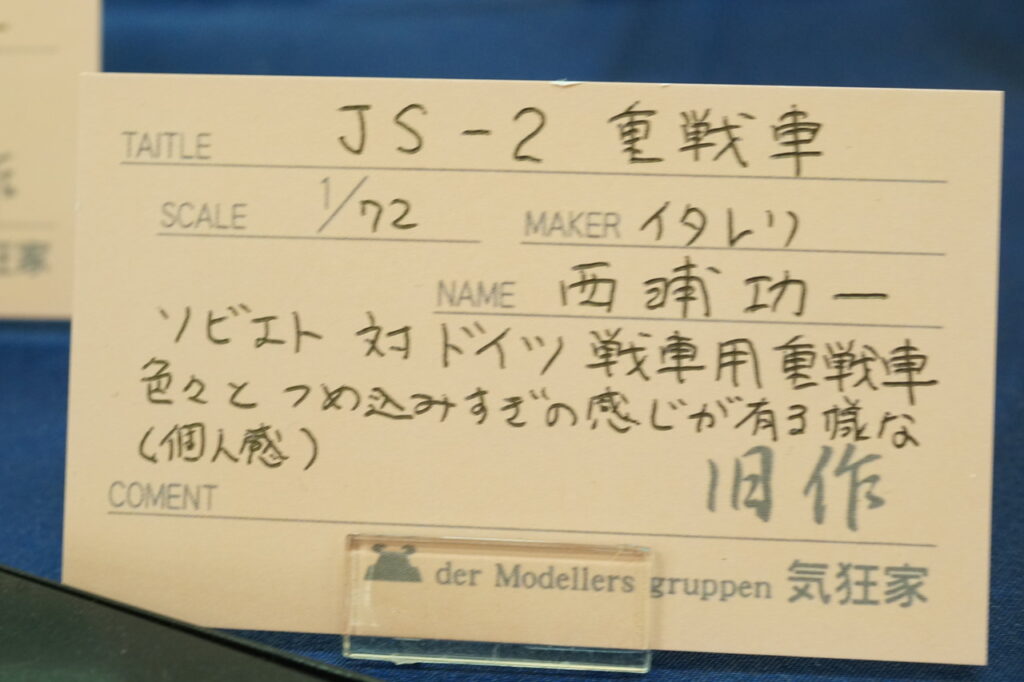 TAITLE JS-2 重戦車
SCALE 1/72 MAKER イタレリ
NAME 西浦功一
ソビエト 対ドイツ戦車用重戦車
色々とつめ込みすぎの感じが有る様な
(個人感)
旧作
COMENT
der Modellers gruppen 気狂家
狂家